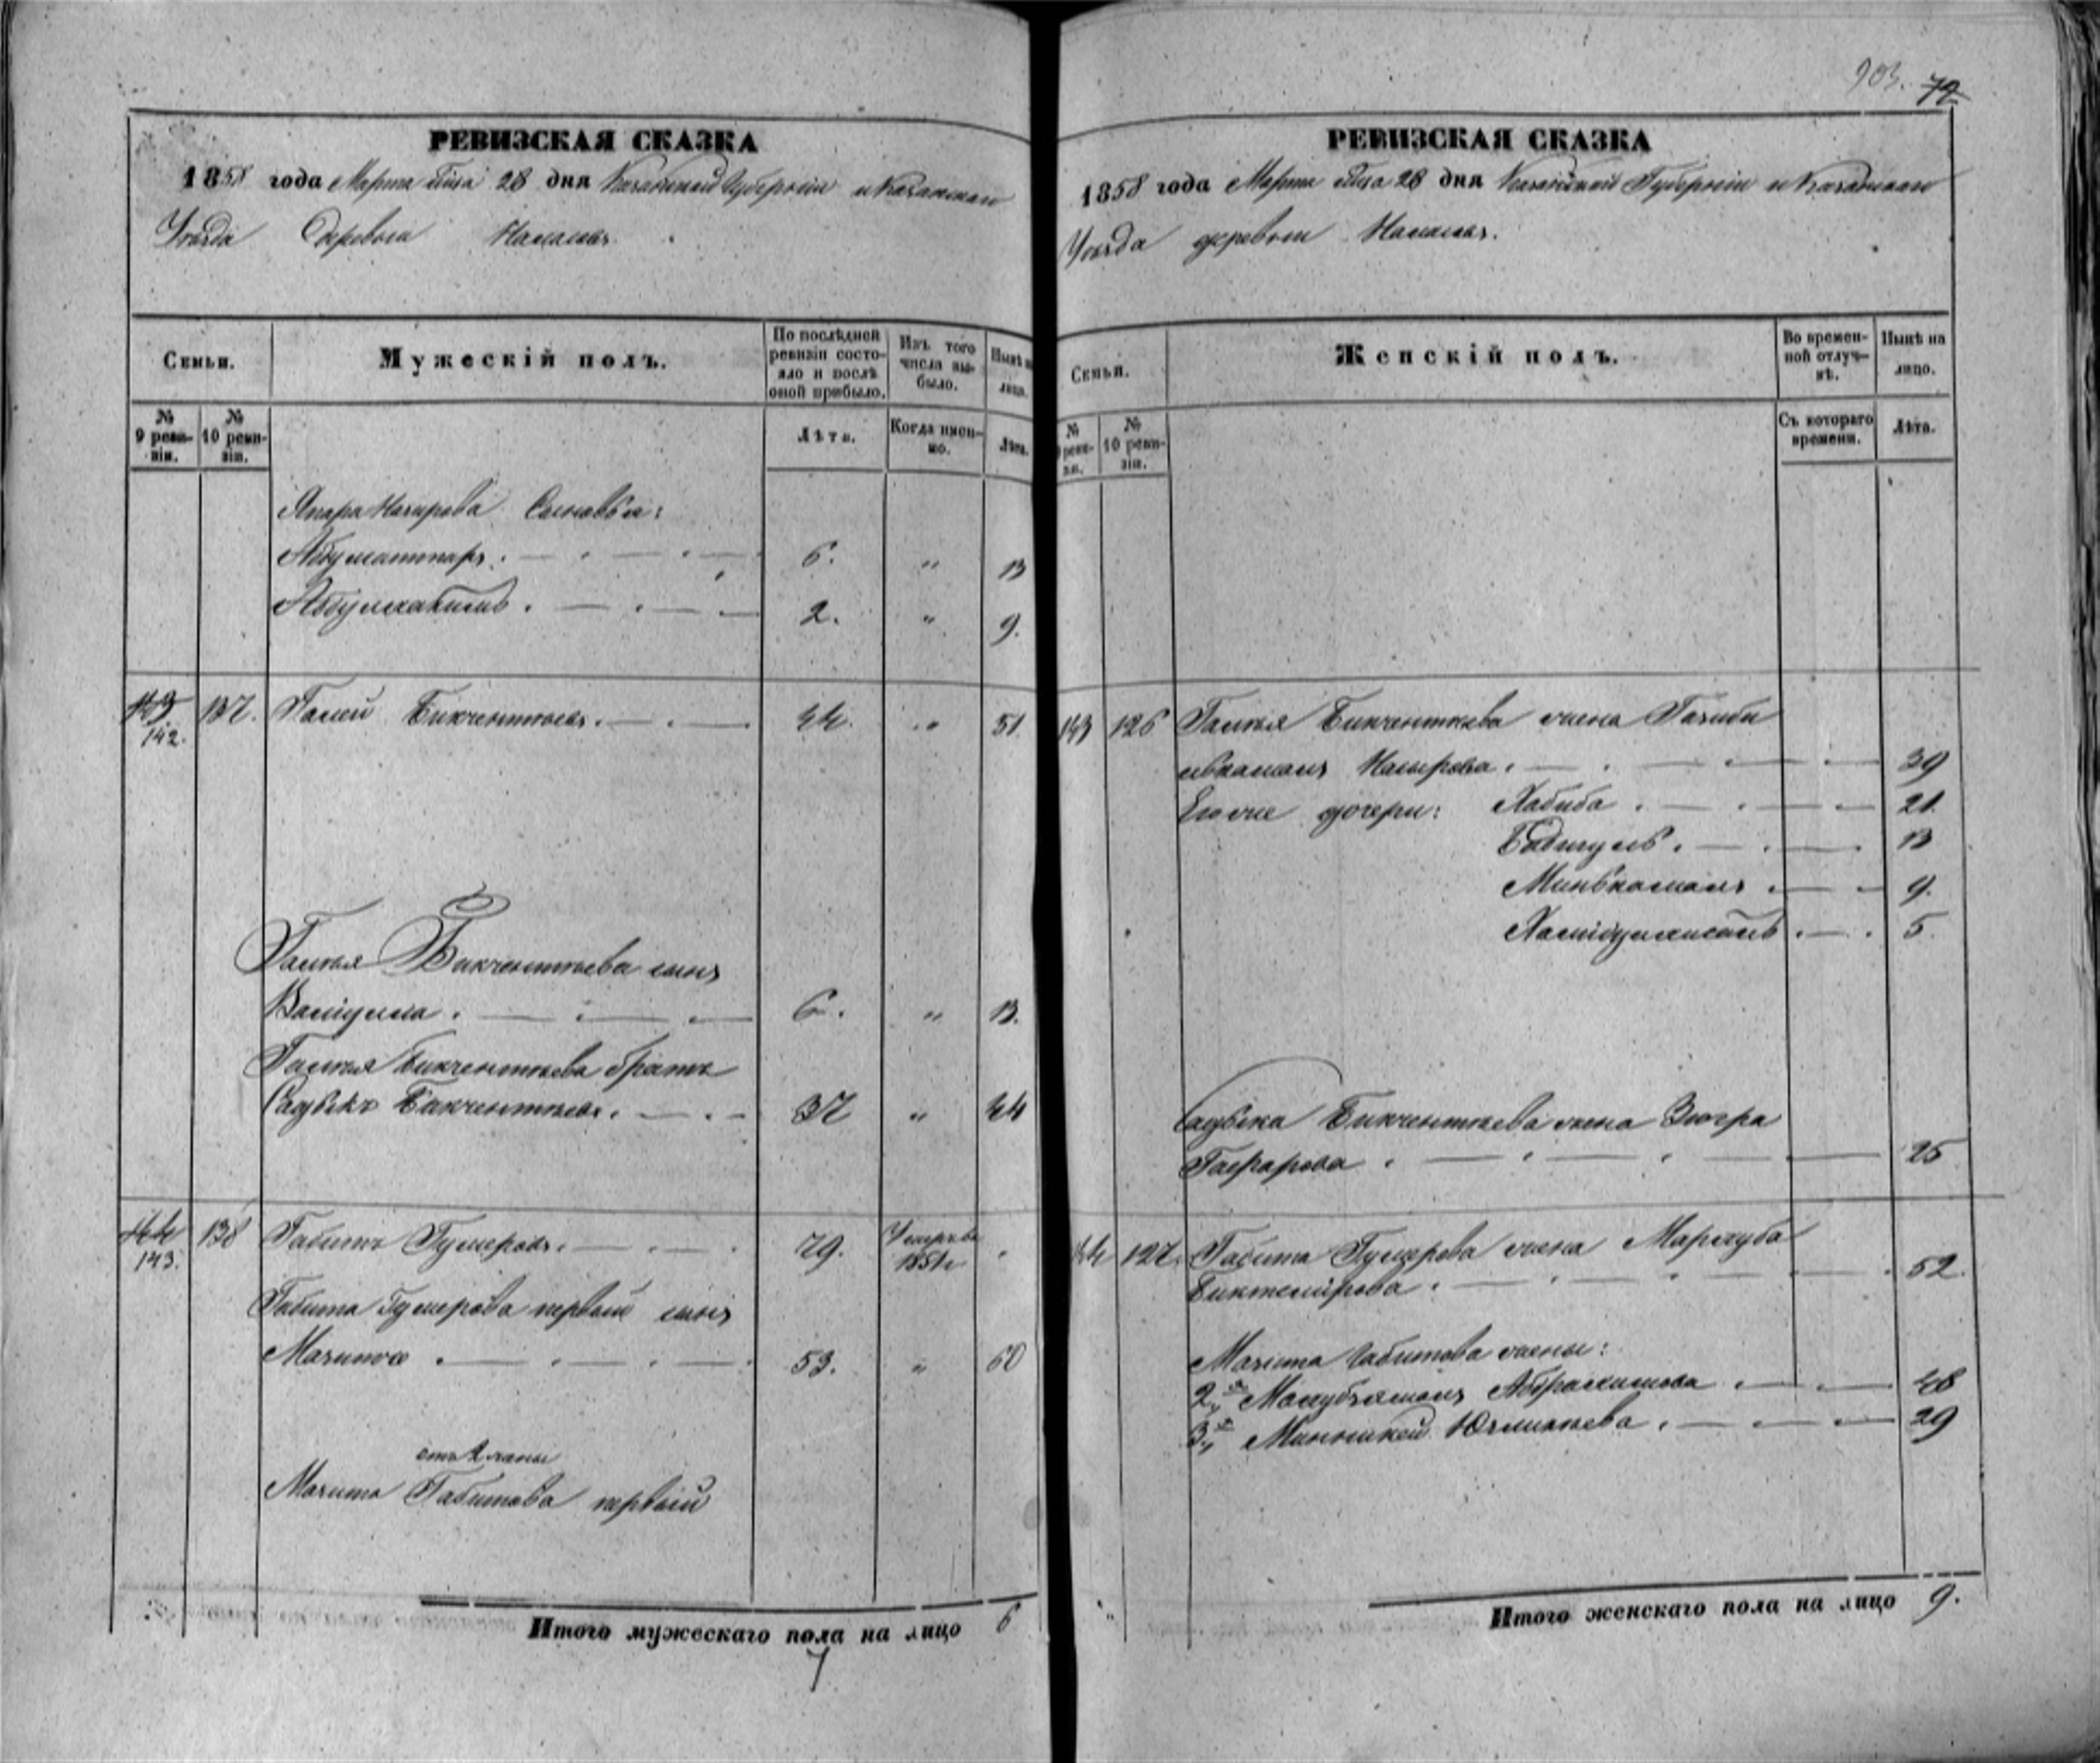 РЕВИЗСКАЯ СКАЗКА
1858 года Марта м-ца 28 дня Казанской Губернии и Казанскаго
Уезда Деревни
Семьи.
Мужескій полъ.
По послѣдней ревизіи состояло и послѣ оной прибыло.
Изъ того числа выбыло.
Нынѣ на лицо.
№ 9 ревизіи.
№ 10 ревизіи.
Лѣта.
Когда именно.
Лѣта.
Сыновья:
Абдулгаттаръ. 6. " 13
Абдулхакимъ. 2. " 9.
143 142. 137. Галей Бикчентѣевъ. 44. " 51
Галѣя Бикчентѣева сынъ
Валіулла. 6. " 13.
Галѣя Бикчентѣева братъ
Садыкъ Бикчентѣевъ. 37 " 44
144 143. 138 Габитъ Гумеровъ. 79. Умеръ въ 1851 г.
Габита Гумерова первый сынъ
Мазитъ. 53. " 60
отъ 2 жены
Мазита Габитова первый
Итого мужескаго пола на лицо 6
7
903. 72
РЕВИЗСКАЯ СКАЗКА
1858 года Марта м-ца 28 дня Казанской Губерніи и Казанскаго
Уѣзда деревни
Семьи.
Женскій полъ.
Во временной отлучкѣ.
Нынѣ на лицо.
№ 9 ревизіи.
№ 10 ревизіи.
Съ котораго времени.
Лѣта.
143 126 Галѣя Бикчентѣева жена
Насырова. 39
Его же дочери: Хабиба. 21.
Бадигулъ. 13
Миньямалъ. 9.
5.
Садыка Бикчентѣева жена Зюгра
Гафарова. 25
144 127. Габита Гумерова жена Маргуба
Биктемирова. 52.
Мазита Габитова жены:
2я Абдрахимова 48
3я 29
Итого женскаго пола на лицо 9.